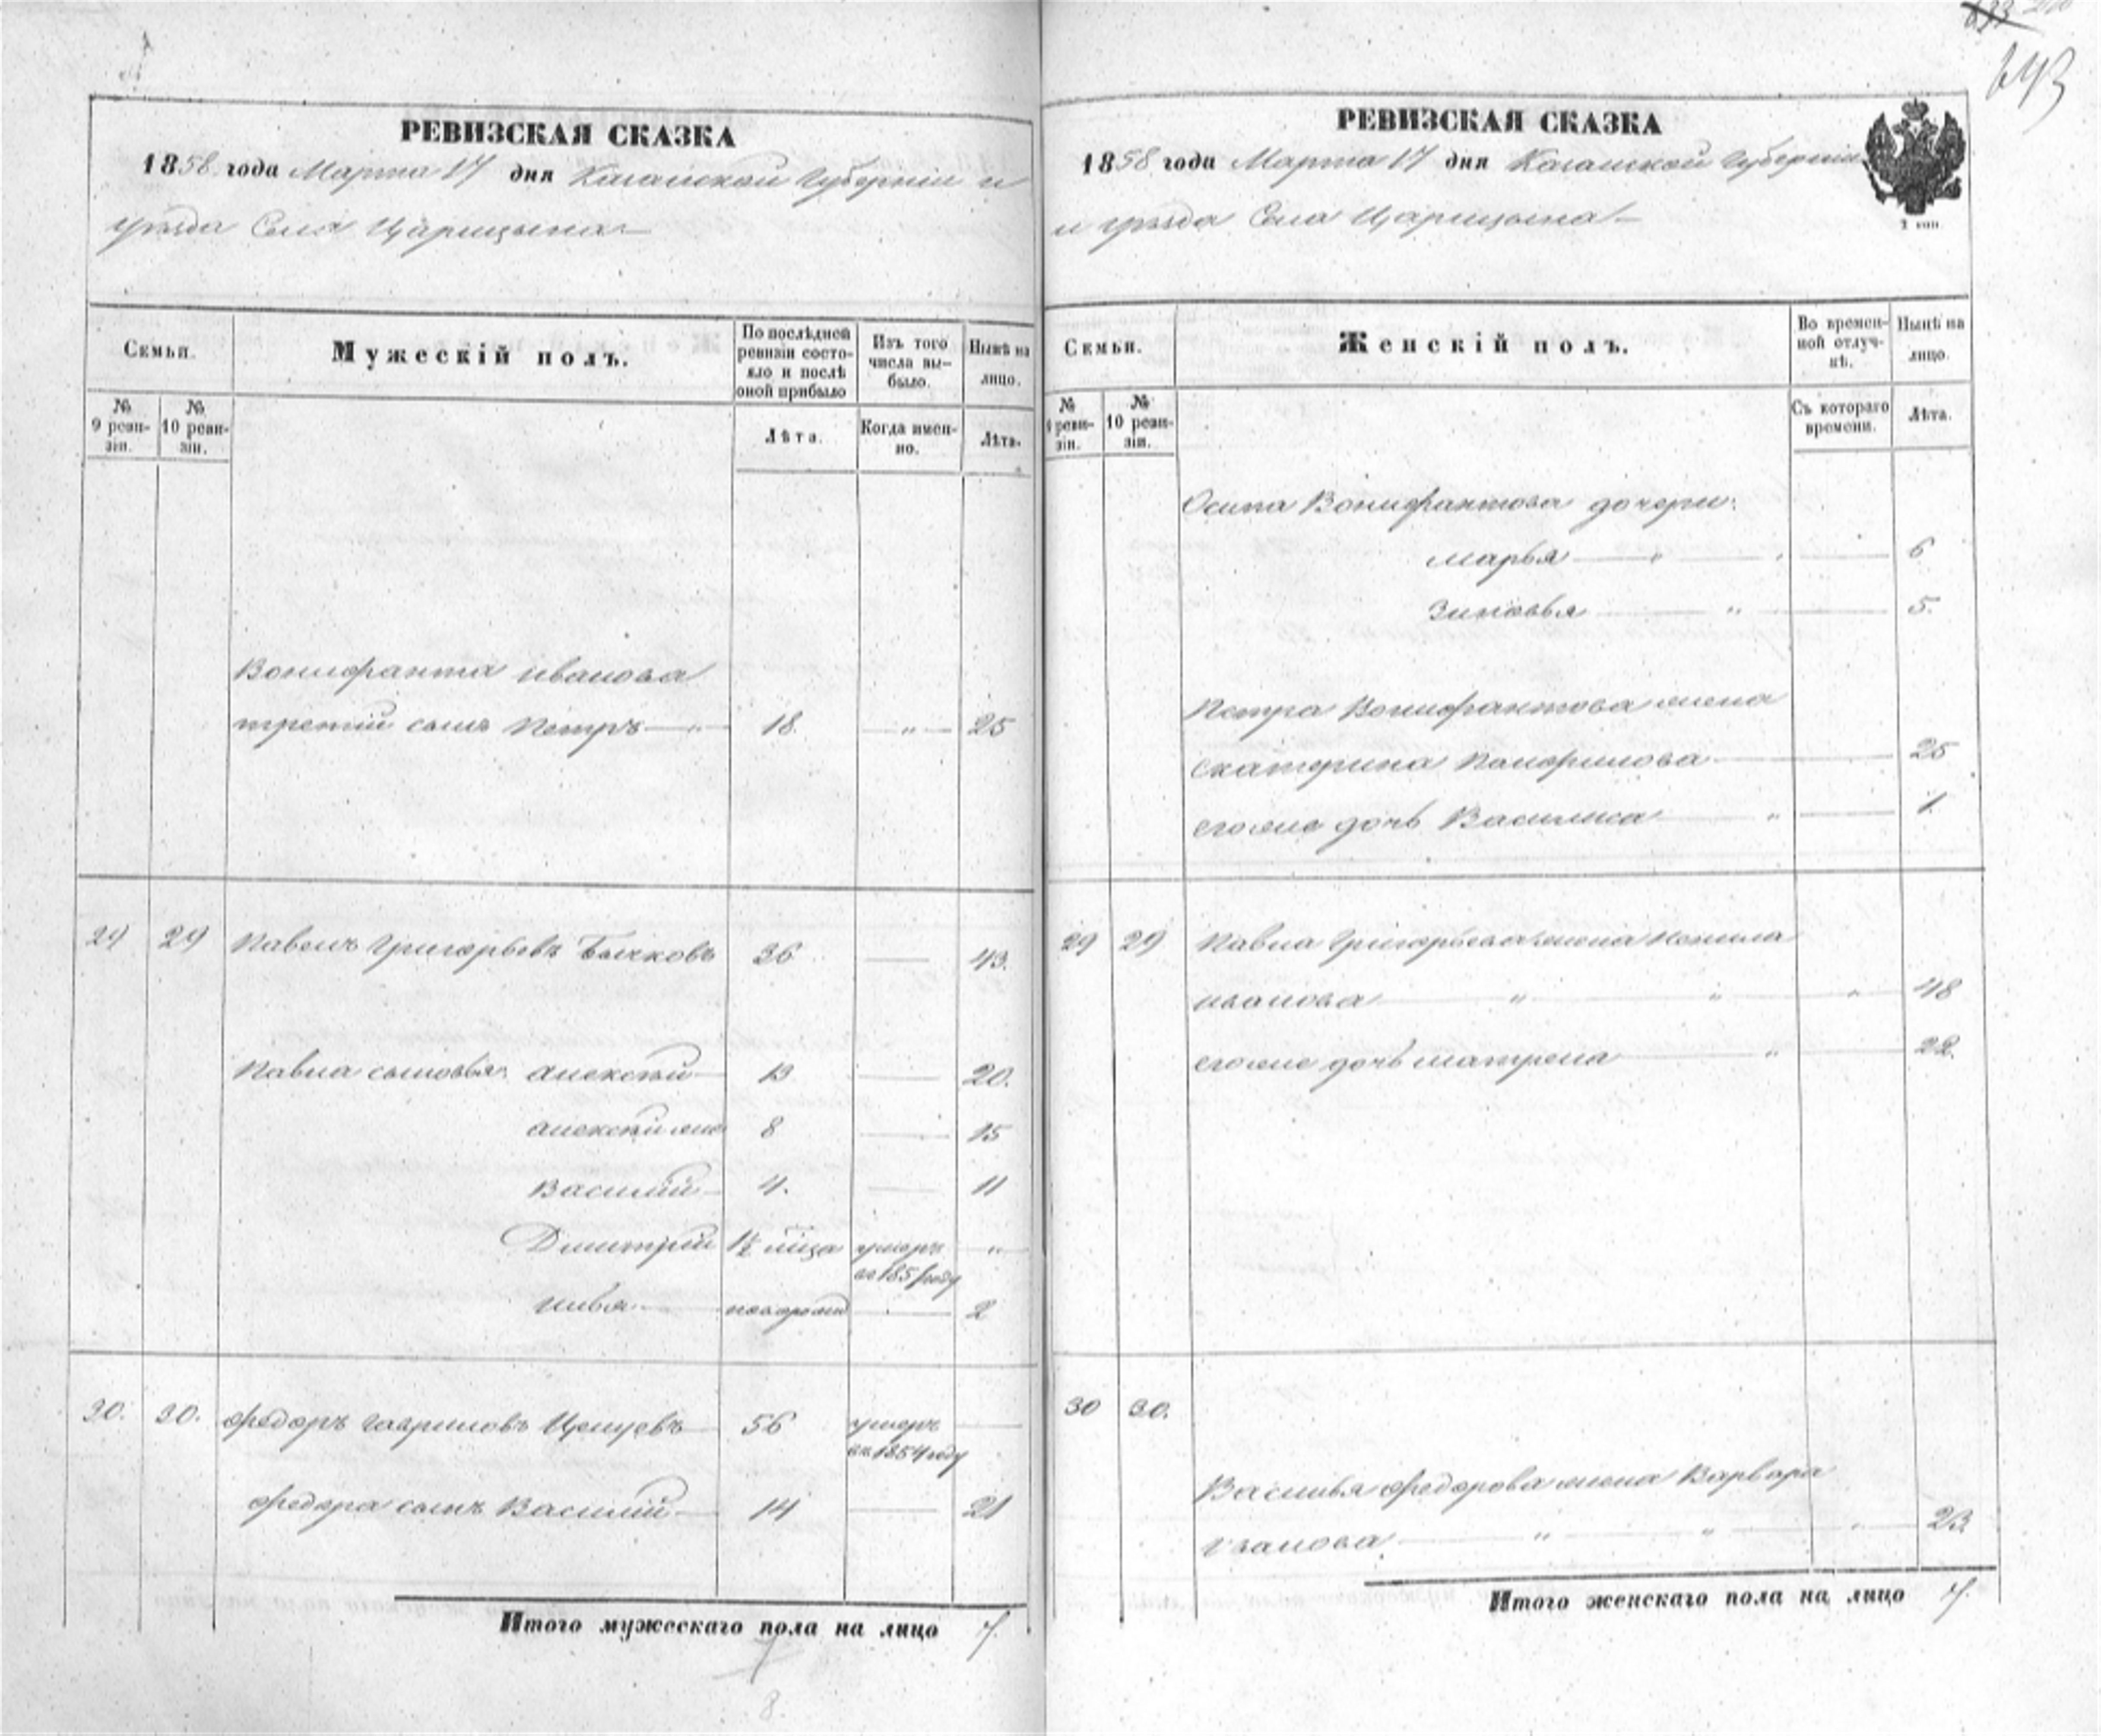 643
РЕВИЗСКАЯ СКАЗКА
1858 года Марта 17 дня Казанской Губерніи и
уѣзда Села Царицына
Семьи.
Мужескій полъ.
По послѣдней ревизіи состояло и послѣ оной прибыло
Изъ того числа выбыло.
Нынѣ на лицо.
№ 9 ревизіи.
№ 10 ревизіи.
Лѣта.
Когда именно.
Лѣта.
Вонифанта Иванова
третій сынъ Петръ — " — 18. — " — 25
29 29 Павелъ Григорьевъ Бычковъ 36 — 43.
Павла сыновья: Алексѣй — 13 — 20.
Алексѣй же 8 — 15
Василій — 4. — 11
Дмитрій 1½ мѣца умеръ — " —
въ 1851 году
Илья — новорожд — 2
30. 30. Федоръ Гавриловъ — 56 умеръ —
въ 1854 году
Федора сынъ Василій — 14 — 21
Итого мужескаго пола на лицо 7.
7
8.
РЕВИЗСКАЯ СКАЗКА
1858 года Марта 17 дня Казанской Губерніи
и уѣзда Села Царицына —
Семьи.
Женскій полъ.
Во временной отлучкѣ.
Нынѣ на лицо.
№ 9 ревизіи.
№ 10 ревизіи.
Съ котораго времени.
Лѣта.
Осипа Вонифантова дочери:
Марья — " — 6
Зиновья — " — 5.
Петра Вонифантова жена
Екатерина — 25
его же дочь Василиса — " — 1.
29 29 Павла Григорьева жена
Иванова — " — " — " — 48
его же дочь Матрена — " — 22.
30 30.
Василья Федорова жена Варвара
Иванова — " — " — " — 23
Итого женскаго пола на лицо 7.